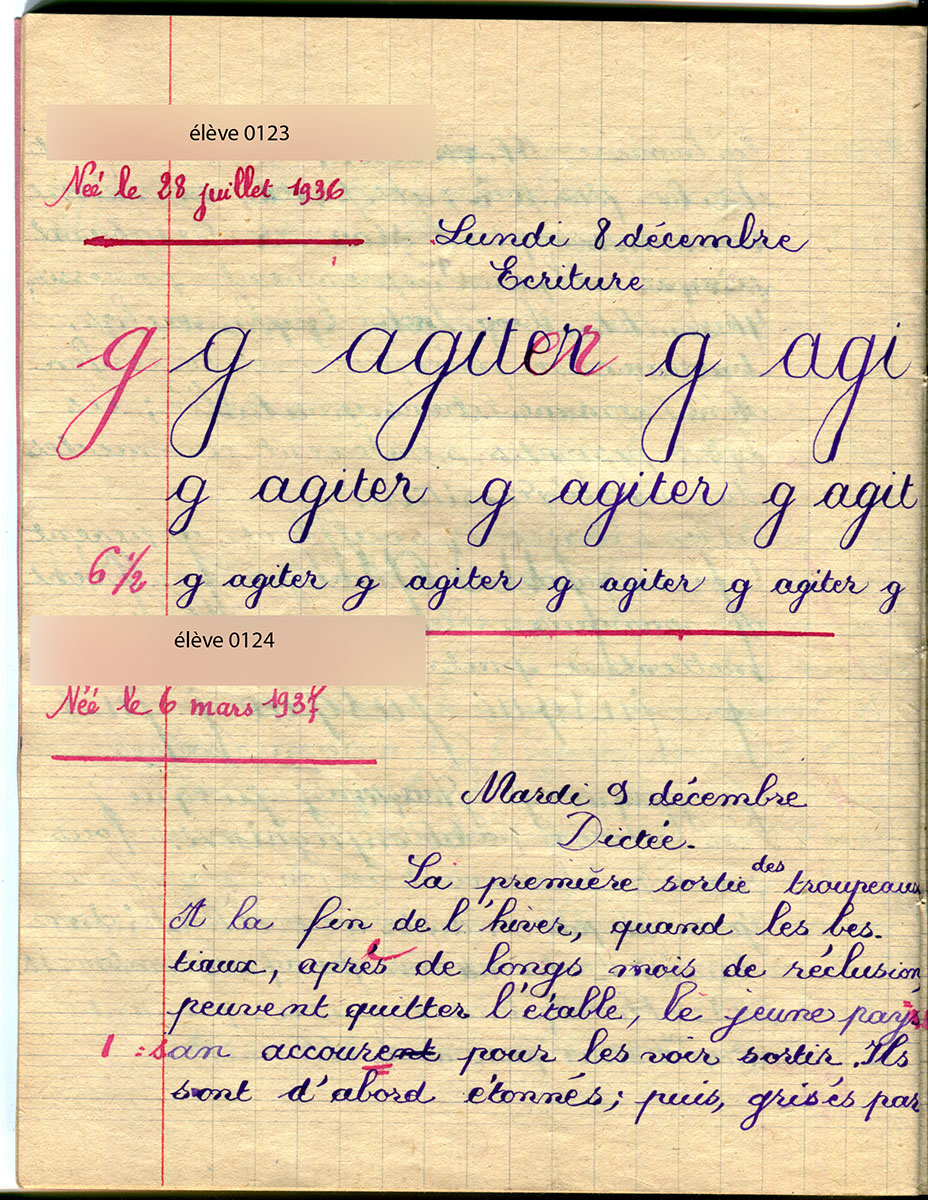 élève 0123
Née le 28 juillet 1936
Lundi 8 décembre
Ecriture
g g agiter g agi
g agiter g agiter g agit
6 1/2 g agiter g agiter g agiter g agiter g
élève 0124
Née le 6 mars 1937
Mardi 9 décembre
Dictée.
La première sortie des troupeaux
A la fin de l'hiver, quand les bes-
tiaux, après de longs mois de réclusion,
peuvent quitter l'étable, le jeune pay
1 : san accourent pour les voir sortir. Ils
sont d'abord étonnés; puis, grisés par